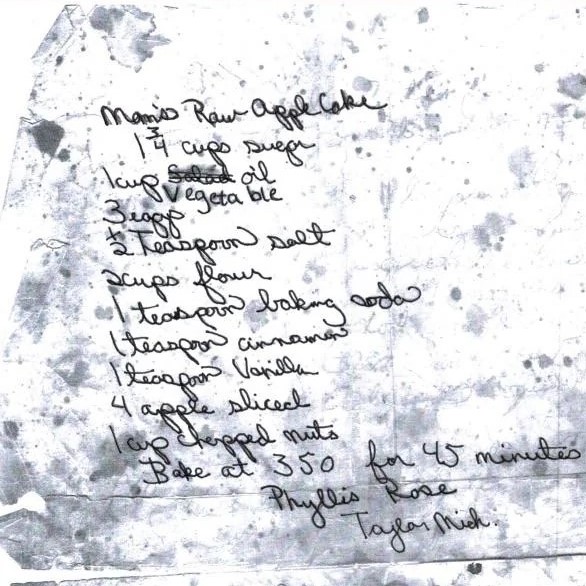 Mom's Raw Apple Cake
1 3/4 cups sugar
1 cup Salad oil
Vegetable
3 eggs
1/2 Teaspoon salt
2 cups flour
1 teaspoon baking soda
1 teaspoon cinnamon
1 teaspoon Vanilla
4 apple sliced
1 cup chopped nuts
Bake at 350 for 45 minutes
Phyllis Rose
Taylor Mich.